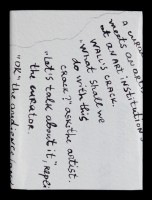 a curat
meets an art
at an ART INSTITUTION
WALL'S CRACK.
"What shall we
do with this
crack?" ask the artist.
"Let's talk about it", repli
the curator.
"OK" the